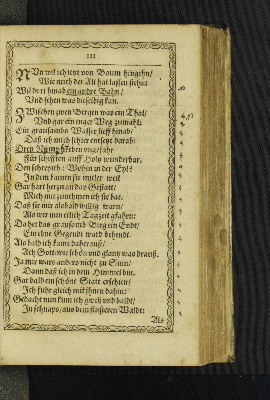 III
NUn wil ich jetzt von Baum hingehn/
Wie mich der Alt hat lassen stehn:
Wil dort hinab ein andre Bahn/
Und sehen was dieselbig kan.
ZWischen zween Bergen was ein Thal/
Und gar ein enger Weg zumahl:
Ein grausambs Wasser lieff hinab/
Daß ich mich schier entsetzt darab:
Drey Nymph
Für schifften auff Holtz wunderbar.
Den schrey ich: Wohin in der Eyl?
Indem kamen sie mitler weil
Gar hart herzu an das Gestatt/
Mich mit zunehmen ich sie bat.
Daß sie mir alsbald willig warn/
Als wir nun etlich Tagzeit gfahrn:
Da het das grausamb Berg ein Endt/
Ein ebne Gegendt ward behendt.
Als bald ich kame daher auß/
Ach Gott wie schön und glantz was drauß.
Ja mir wars anders nicht zu Sinn/
Dann daß ich in dem Himmel bin.
Gar bald ein schöne Statt erschien/
Ich fuhr gleich mit ihnen dahin:
Gedacht nun kum ich gwiß und baldt/
In schnaps/ aus dem finsteren Waldt:
Als